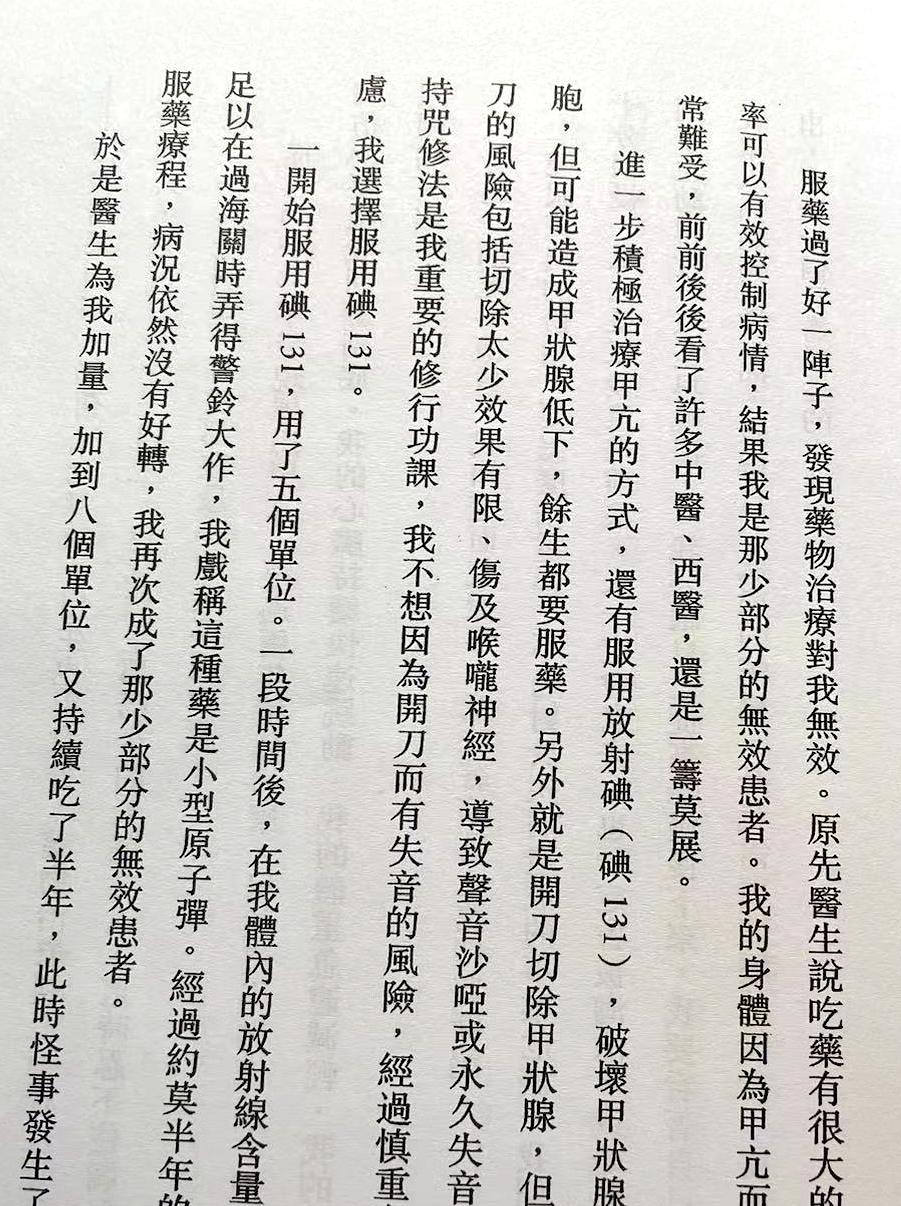 服藥過了好一陣子，發現藥物治療對我無效。原先醫生說吃藥有很大的
率可以有效控制病情，結果我是那少部分的無效患者。我的身體因為甲亢而
常難受，前前後後看了許多中醫、西醫，還是一籌莫展。
進一步積極治療甲亢的方式，還有服用放射碘（碘131），破壞甲狀腺
胞，但可能造成甲狀腺低下，餘生都要服藥。另外就是開刀切除甲狀腺，但
刀的風險包括切除太少效果有限、傷及喉嚨神經，導致聲音沙啞或永久失音
持咒修法是我重要的修行功課，我不想因為開刀而有失音的風險，經過慎重
慮，我選擇服用碘131。
一開始服用碘131，用了五個單位。一段時間後，在我體內的放射線含量
足以在過海關時弄得警鈴大作，我戲稱這種藥是小型原子彈。經過約莫半年的
服藥療程，病況依然沒有好轉，我再次成了那少部分的無效患者。
於是醫生為我加量，加到八個單位，又持續吃了半年，此時怪事發生了